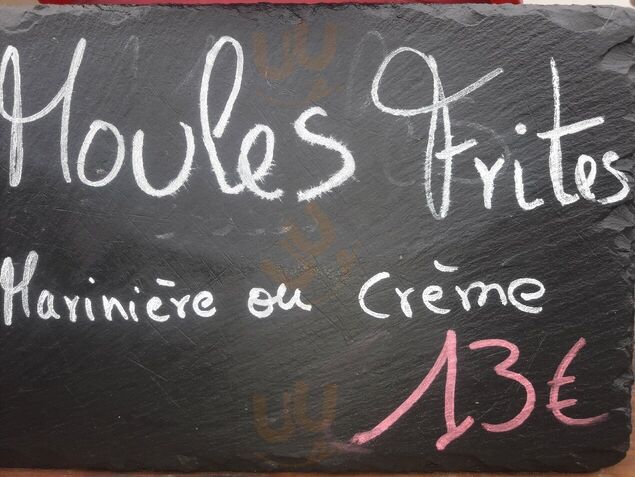 Moules Frites
Marinière ou Crème
13€